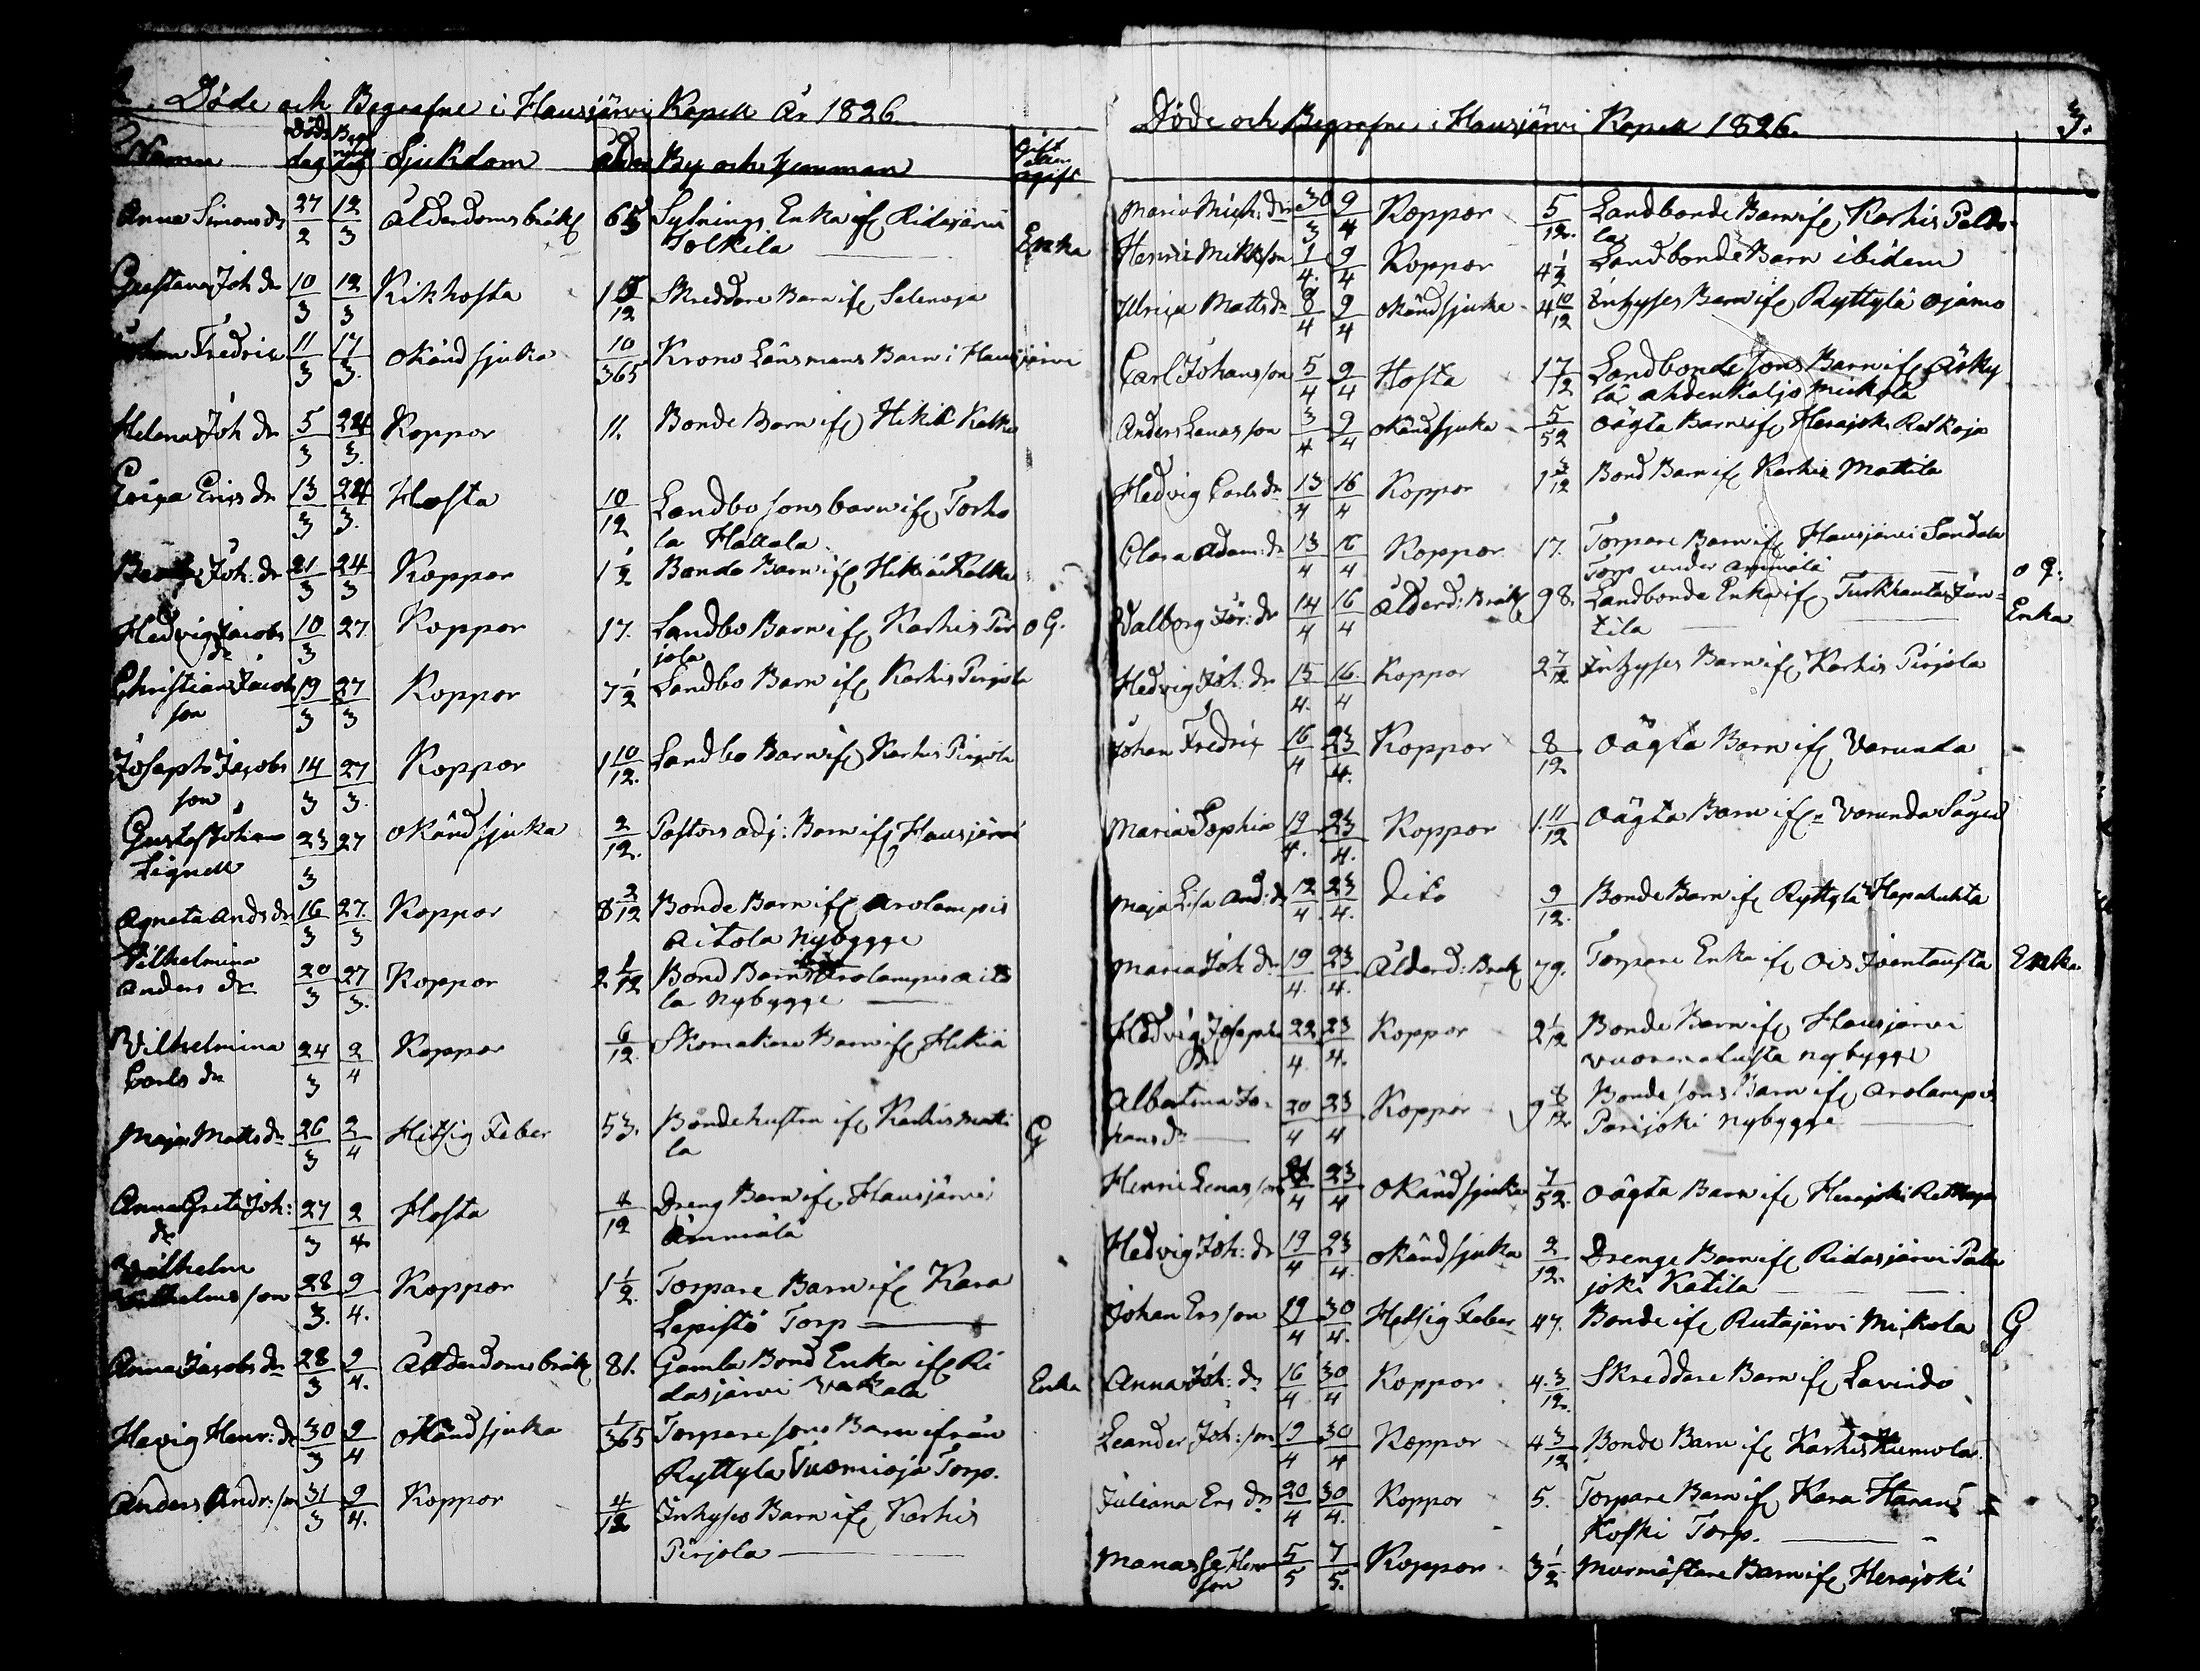 2. Döde och Begrafne i Hausjärvi Kapell År 1826.
Namn Döds dag Begr dag Sjukdom Ålder By och Hemman Gift eller ogift
Anna Simons dr 27/2 12/3 Ålderdoms bräkl 65 Sytnings Enka ifr Ridasjärvi
Tolkila Enka
Gustava Joh dr 10/3 12/3 Kikhosta 1 5/12 Skreddare Barn ifr Selenoja
Johan Fredric 11/3 17/3. okänd sjuka 10/365 Krono Länsmans Barn i Hausjärvi
Helena Joh dr 5/3 24/3. Koppor 11. Bonde Barn ifr Hikiä Kalke
Erics dr 13/3 24/3. Hosta 10/12 Landbo sons barn ifr Torho
la Hattala
Joh: dr 21/3 24/3 Koppor 1 1/2 Bonde Barn ifr Hikiä Kalke
Hedvig Jacobs dr 10/3 27 Koppor 17. Landbo Barn ifr Karhis Pir
jola o G.
Christian Jacobs son 19/3 27/3 Koppor 7 1/2 Landbo Barn ifr Karhis Pirjola
Joseph Jacobs son 14/3 27/3. Koppor 1 10/12. Landbo Barn ifr Karhis Pirjola
Gustaf Johan Lignell 23/3 27 okänd sjuka 2/12. Pastors adj: Barn ifr Hausjärvi
Agneta Ands dr 16/3 27./3 Koppor 8 2/12 Bonde Barn ifr Arolampis
Aitola Nybygge
Vilhelmina Anders dr 20/3 27/3. Koppor 2 1/12 Bond Barn Arolampis Aito
la Nybygge
Wilhelmina Carls dr 24/3 2/4 Koppor 6/12. Skomakare Barn ifr Hikiä
Maja Matts dr 26/3 2/4 Hitsig Feber 53. Bondehustru ifr Karhis Matti
la G
Anna Greta Joh: dr 27/3 2/4 Hosta 4/12 Dreng Barn ifr Hausjärvi
Ämmälä
Wilhelm Wilhelms son 28/3. 9/4. Koppor 1 1/2. Torpare Barn ifr Kara
Lepistö Torp
Anna Jacobs dr 28/3 9/4. Ålderdoms bräkl 81. Gamla Bond Enka ifr Ri
dasjärvi Vakala Enka
Hevig Henr: dr 30/3 9/4 okänd sjuka 1/365 Torpare sons Barn ifrån
Ryttyla Vuormioja Torp.
Anders Andr: son 31/3 9/4. Koppor 4/12 Inhyses Barn ifr Karhis
Pirjola
Döde och Begrafne i Hausjärvi Kapell 1826. 3.
Maria Mich: dr 30/3 9/4 Koppor 5/12. Landbonde Barn ifr Karhis
la
Henric Mikkson 1/4. 9/4 Koppor 4 1/2 Landbonde Barn ibidem
Ulrica Matts dr 8/4 9/4 okänd sjuka 4 10/12 Inhyses Barn ifr Ryttylä Ojamo
Carl Johansson 5/4 9/4 Hosta 1 7/12 Landbonde sons Barn ifr
Mickola
Anders Lenas son 3/4 9/4 okänd sjuka 5/52 Oägta Barn ifr Herajoki Retkoja
Hedvig Carls dr 13/4 16/4 Koppor 1 3/12 Bond Barn ifr Karhis Mattila
Clara Adam: dr 13/4 16/4 Koppor 17. Torpare Barn ifr Hausjärvi Sandala
Torp under Ämmälä o G.
Valborg Jör: dr 14/4 16/4 Ålderd: Bräkl 98. Landbonde Enka ifr Turkhauta Jun-
tila Enka
Hedvig Joh: dr 15/4. 16./4 Koppor 2 7/12 Inhyses Barn ifr Karhis Pirjola
Johan Fredric 16/4 23/4. Koppor 8/12 Oägta Barn ifr Varunda
Maria Sophia 19/4. 23/4. Koppor 1. 11/12 Oägta Barn ifr Varunda
Maja Lisa And: dr 12/4 23/4. Dito 9/12. Bonde Barn ifr Ryttylä Hapahuhta
Maria Joh: dr 19/4. 23/4. Ålderd: Bräkl 79. Torpare Enka ifr Ois Joentausta Enka
Hedvig Josephs dr 22/4 23/4. Koppor 2 1/12 Bonde Barn ifr Hausjärvi
Vuorenalusta Nybygge
Albertina Jo-
hans dr 20/4 23/4 Koppor 9 8/12 Bonde sons Barn ifr Arolampi
Parijoki Nybygge
Henric Lenas son 21/4 23/4 okänd sjuka 7/52. Oägta Barn ifr Herajoki Retkoja
Hedvig Joh: dr 19/4 23/4. okänd sjuka 2/12. Drenge Barn ifr Ridasjärvi
joki Katila
Johan Ersson 19/4 30/4. Hetsig Feber 47. Bonde ifr Rutajärvi Mikola G
Anna Joh: dr 16/4 30/4 Koppor 4. 3/12. Skreddare Barn ifr Lavindo
Leander Joh: son 19/4 30/4 Koppor 4 3/12 Bonde Barn ifr Karhis Humola
Juliana Ers dr 20/4 30/4. Koppor 5. Torpare Barn ifr Kara Harans
Koski Torp.
Manasse Henr son 5/5 7/5. Koppor 3 1/2 Murmästare Barn ifr Herajoki